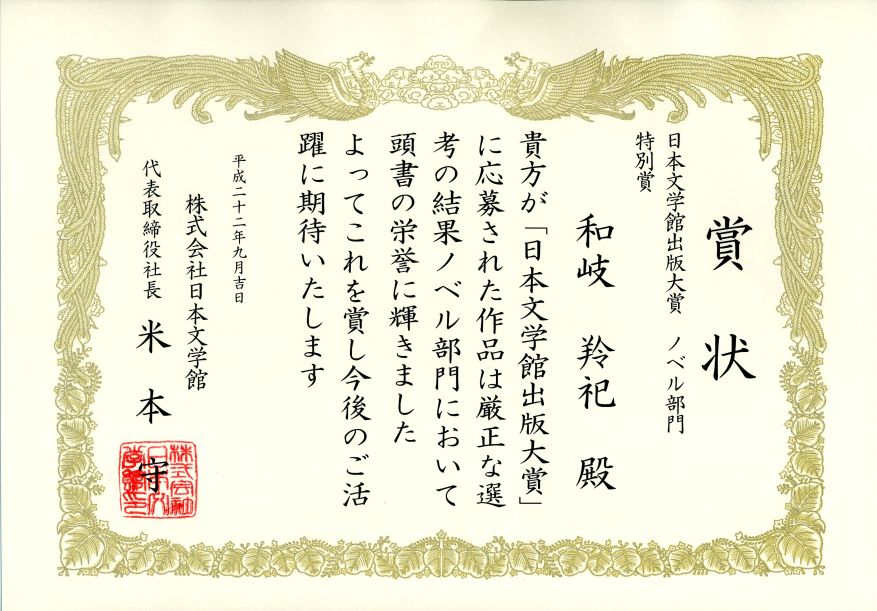 賞状
日本文学館出版大賞　ノベル部門
特別賞
和岐　羚祀　殿
貴方が「日本文学館出版大賞」
に応募された作品は厳正な選
考の結果ノベル部門において
頭書の栄誉に輝きました
よってこれを賞し今後のご活
躍に期待いたします
平成二十二年九月吉日
株式会社日本文学館
代表取締役社長　米本　守